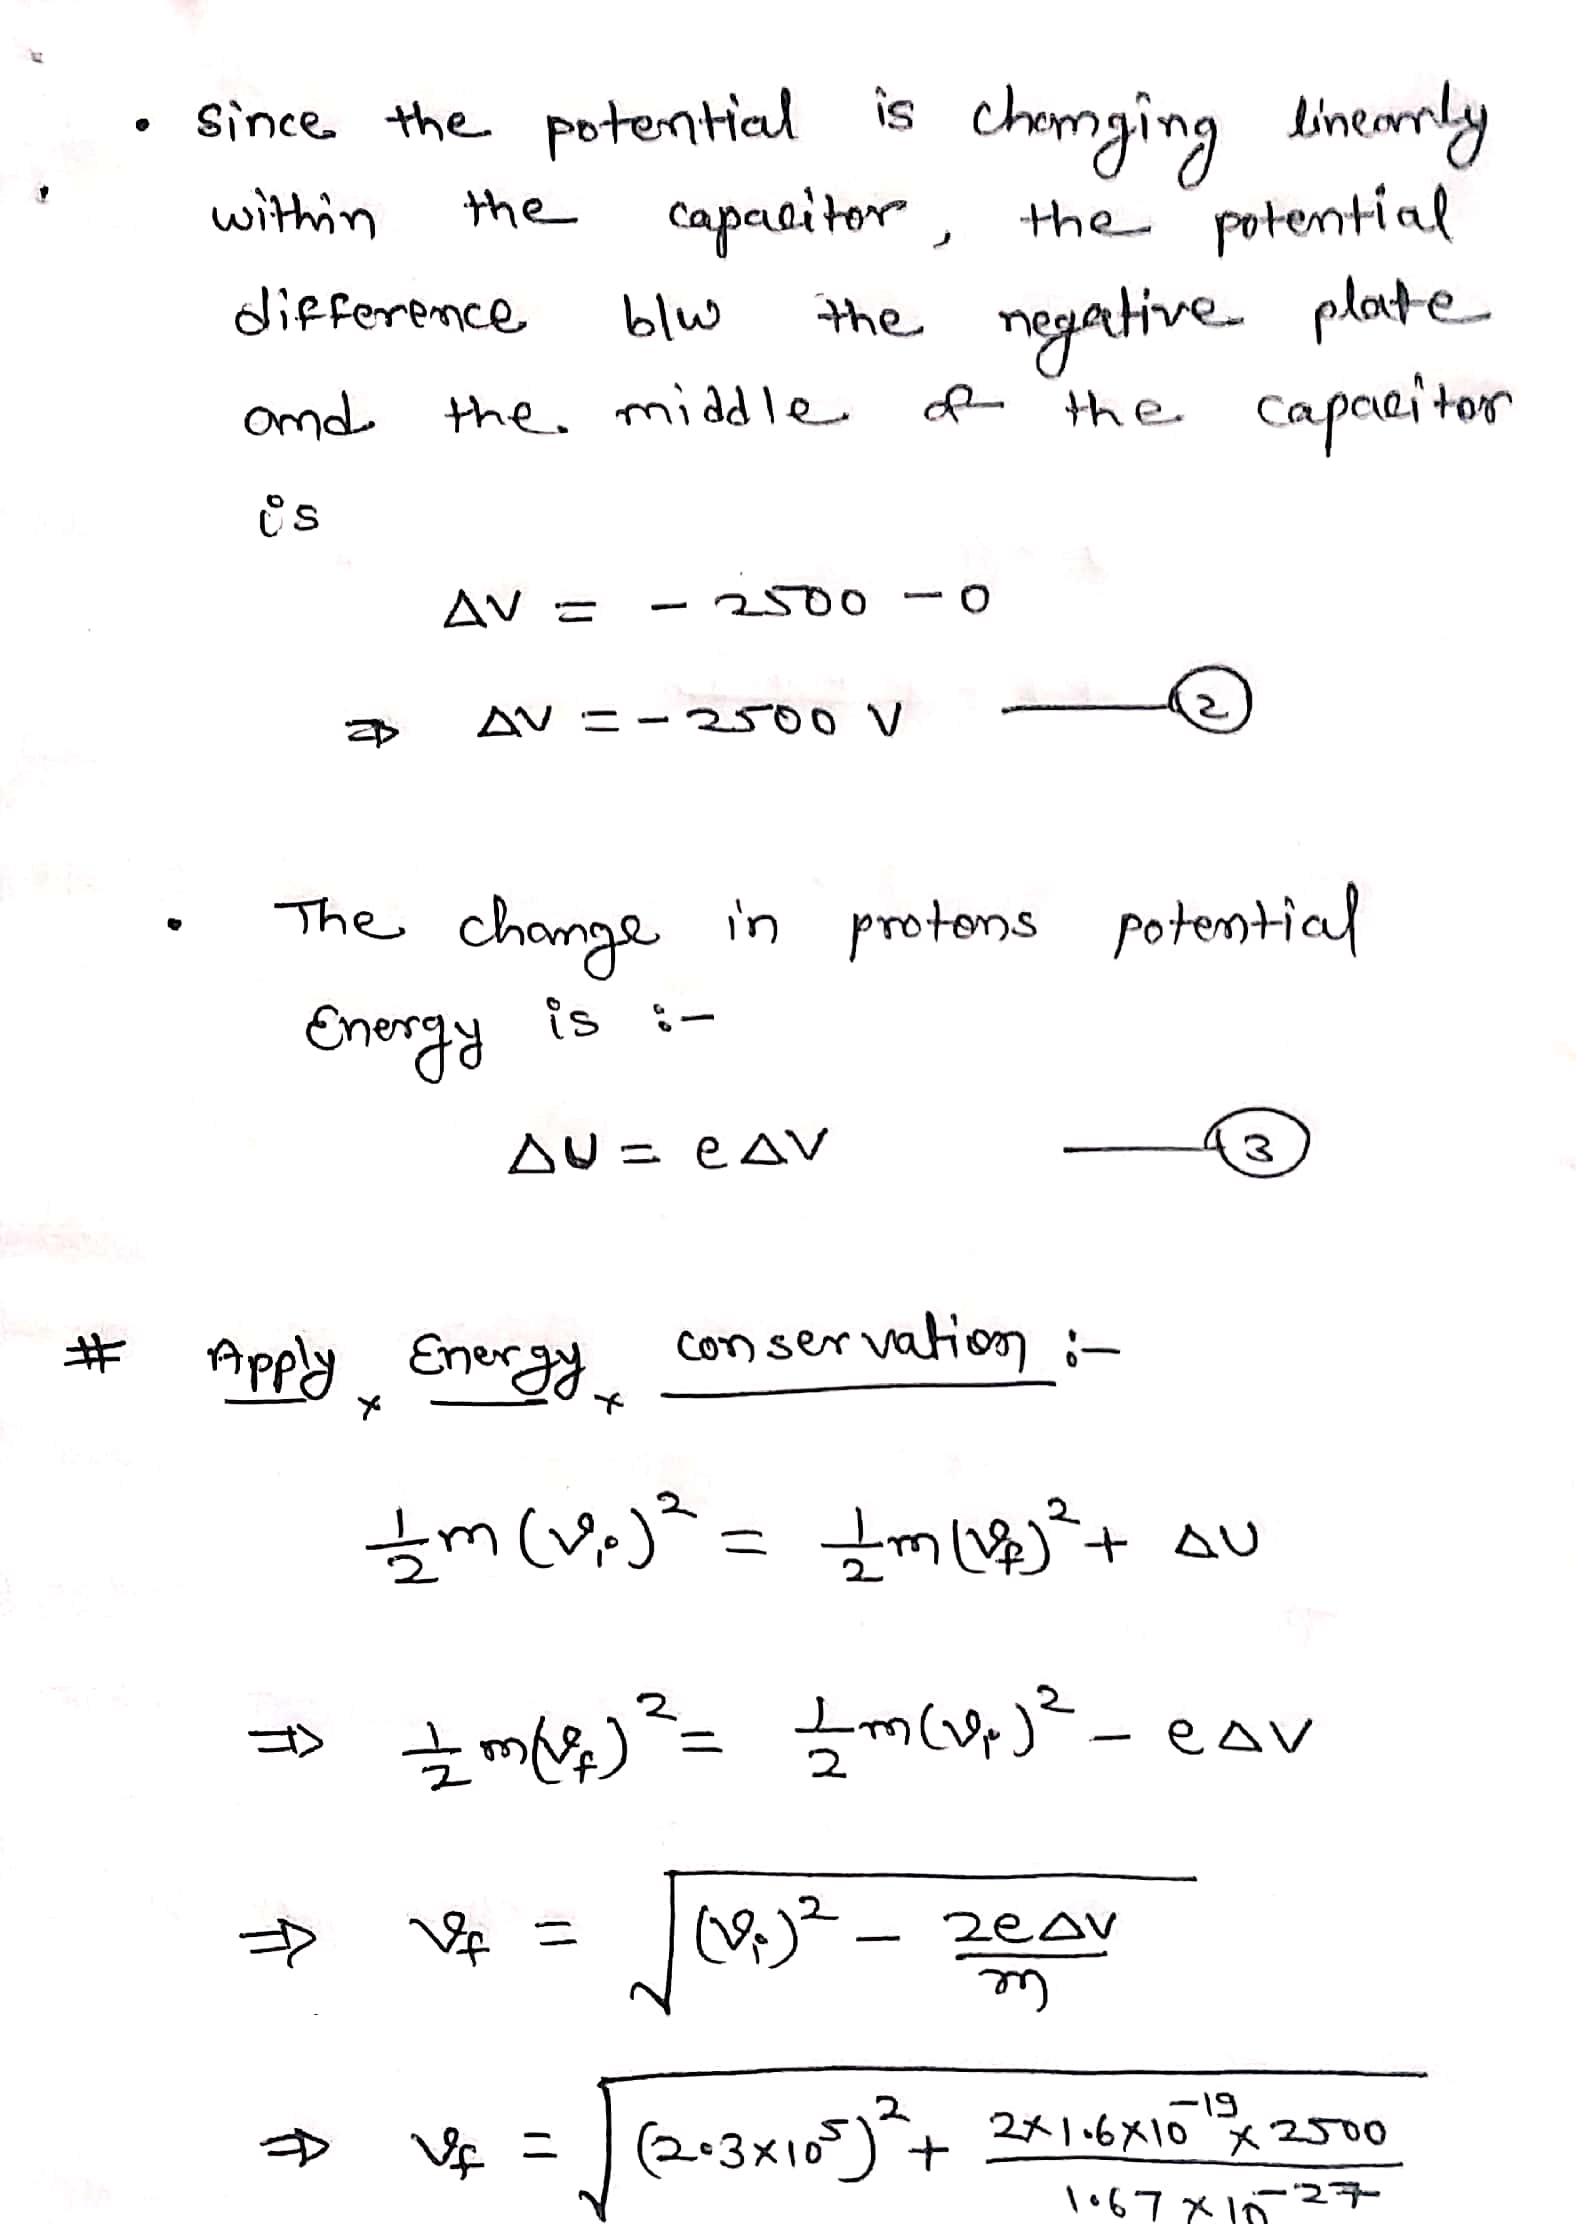 • Since the potential is changing linearly
within the capacitor, the potential
difference b/w the negative plate
and the middle of the capacitor
is
ΔV = - 2500 - 0
⇒ ΔV = - 2500 V —— ②
• The change in protons potential
Energy is :-
ΔU = eΔV —— ③
# Apply Energy conservation :-
1/2 m (vi)² = 1/2 m (vf)² + ΔU
⇒ 1/2 m (vf)² = 1/2 m (vi)² - eΔV
⇒ vf = √((vi)² - 2eΔV/m)
⇒ vf = √((2.3×10⁵)² + 2×1.6×10⁻¹⁹×2500/1.67×10⁻²⁷)